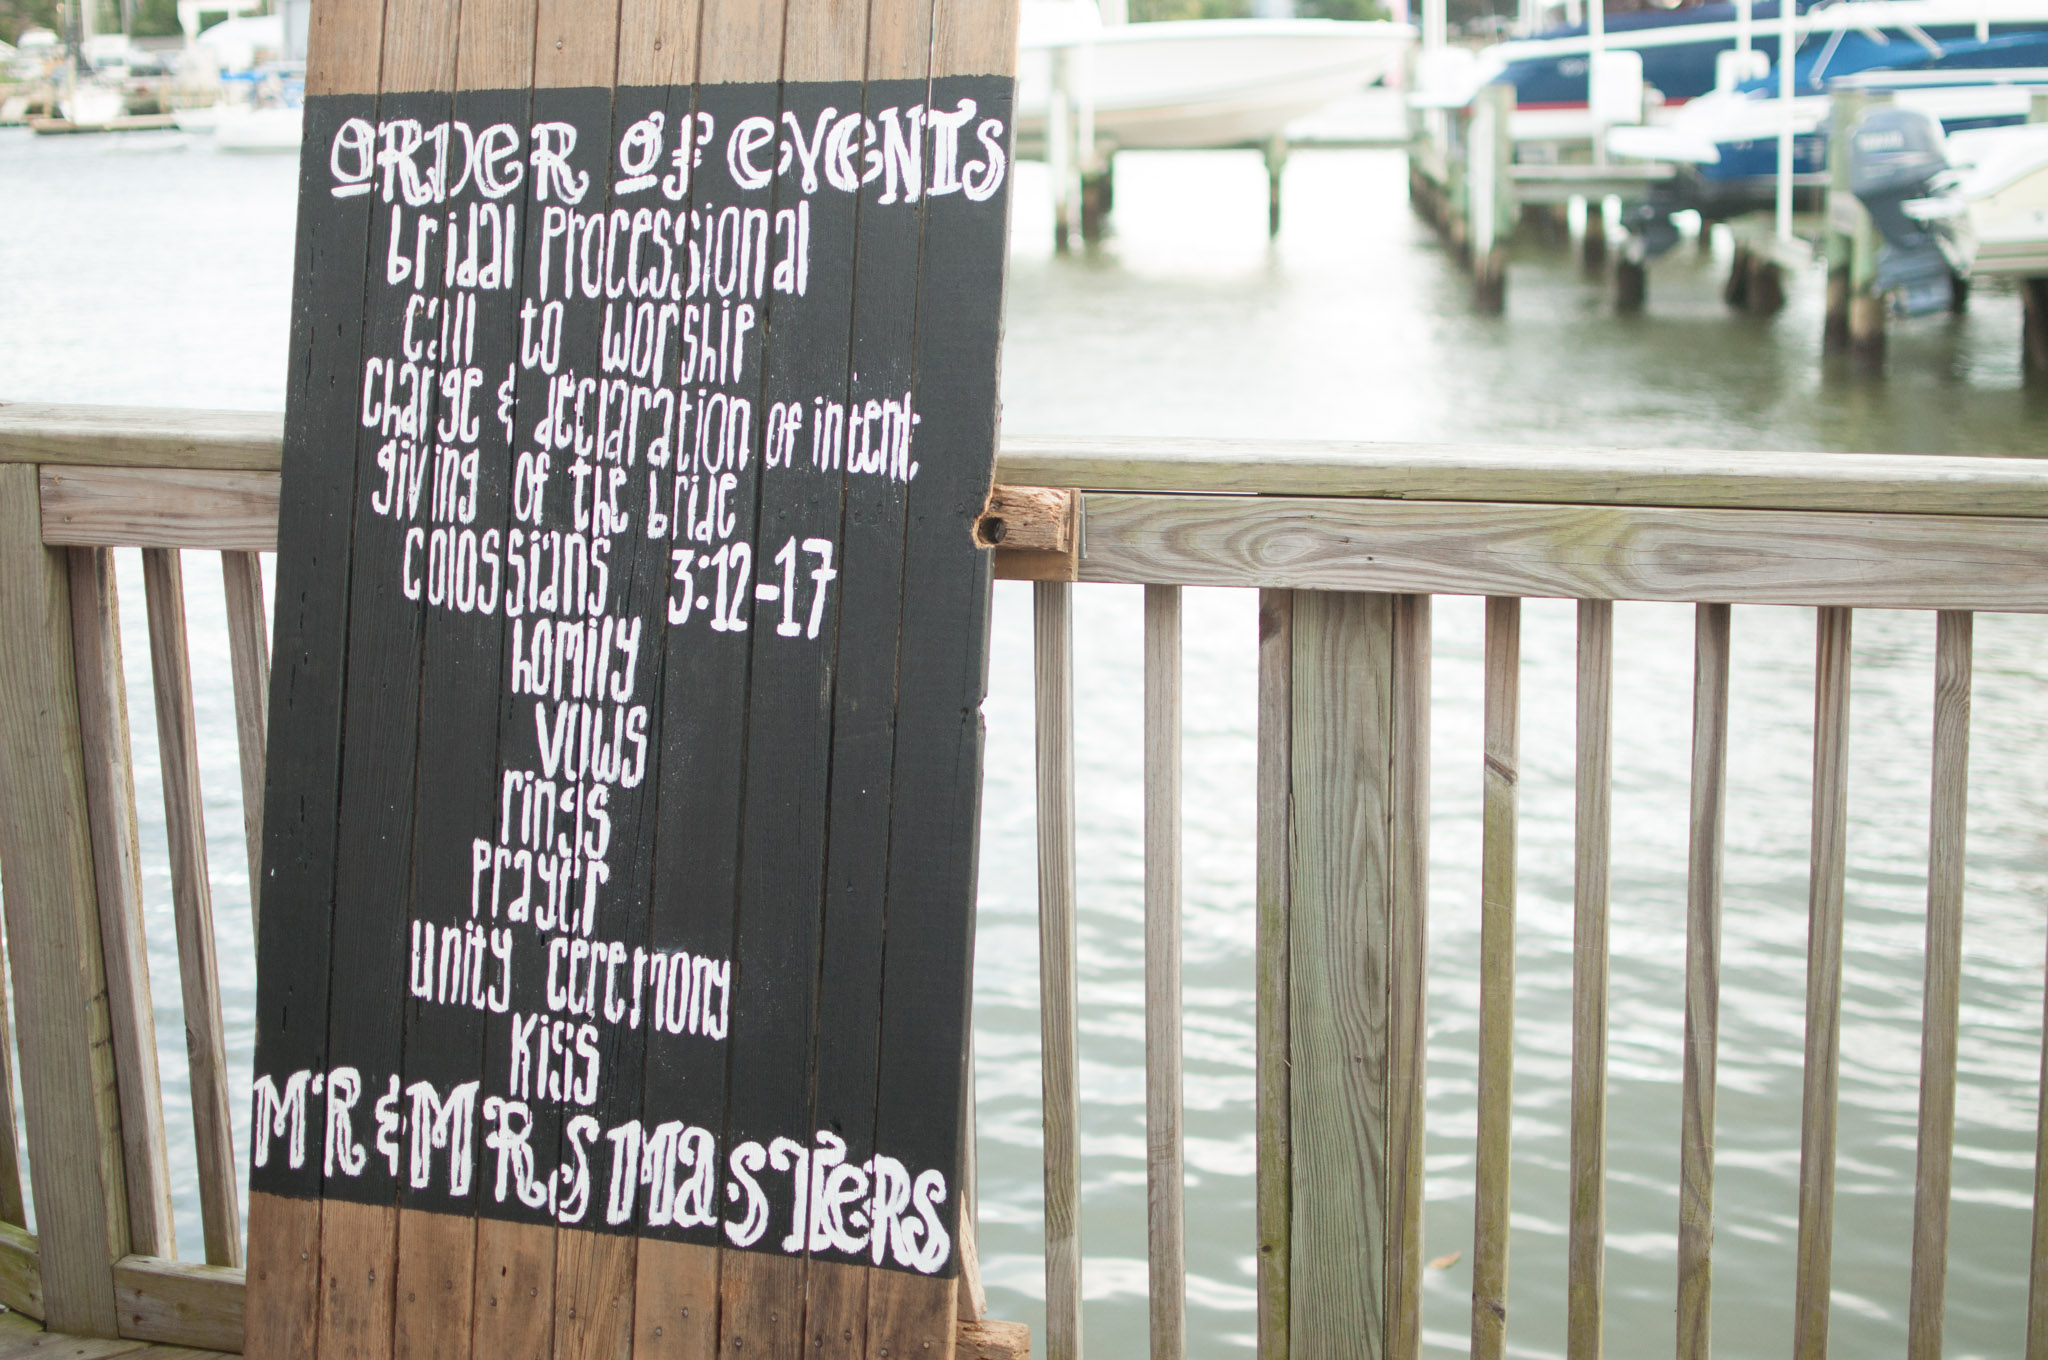 ORDER OF EVENTS
bridal Processional
call to worship
charge & declaration of intent;
giving of the bride
colossians 3:12-17
homily
vows
rings
Prayer
unity ceremony
kiss
MR & MRS MASTERS